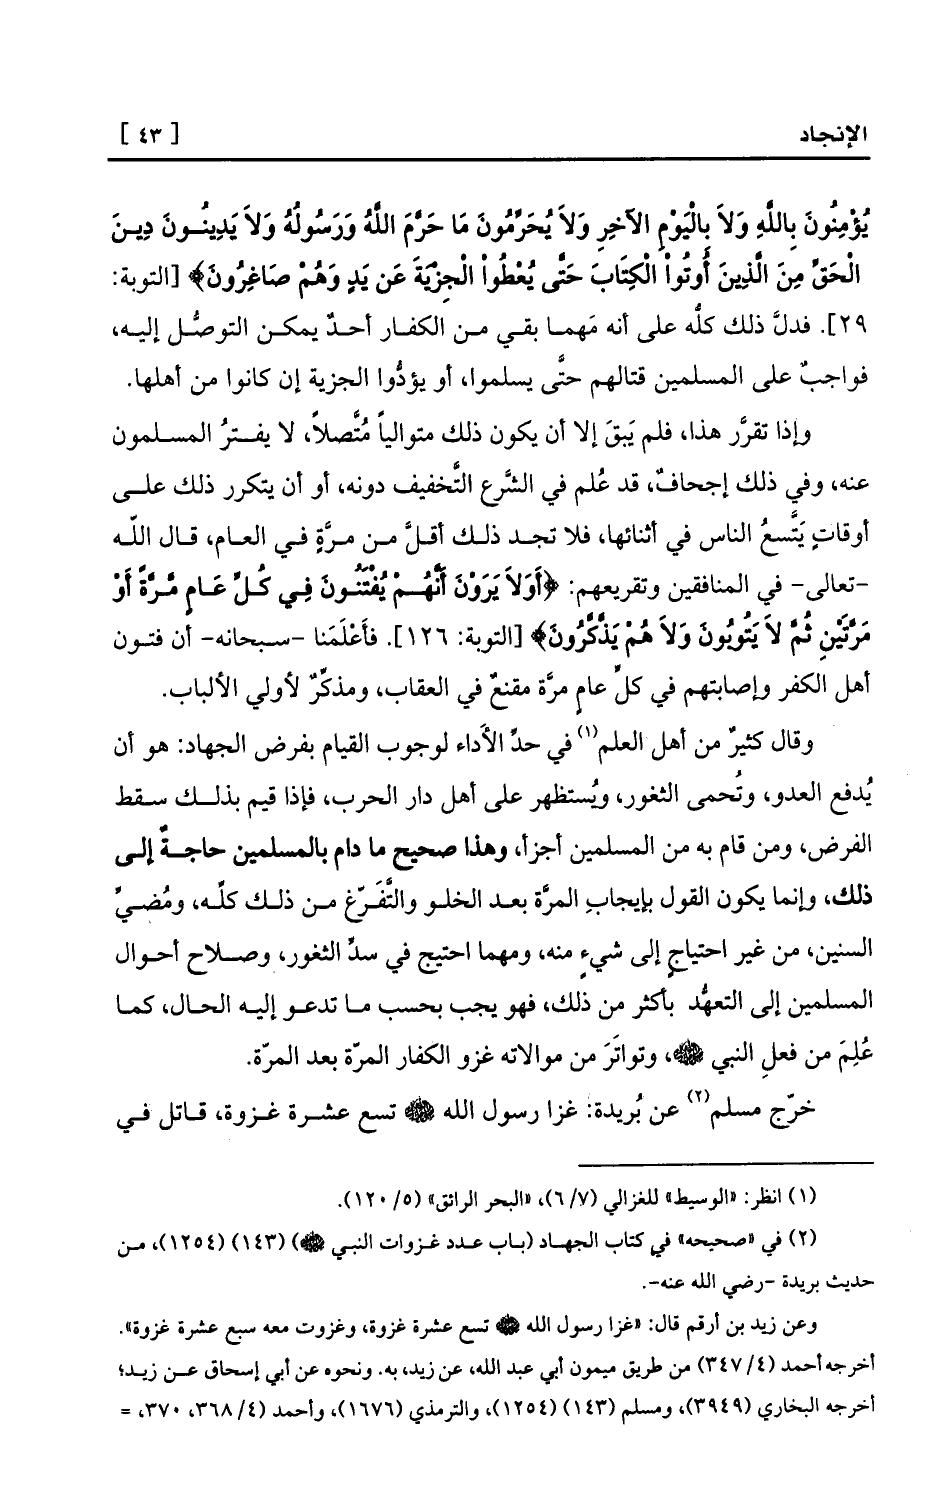 الإنجاد [ ٤٣ ]
يُؤْمِنُونَ بِاللَّهِ وَلاَ بِالْيَوْمِ الآخِرِ وَلاَ يُحَرِّمُونَ مَا حَرَّمَ اللَّهُ وَرَسُولُهُ وَلاَ يَدِينُونَ دِينَ
الْحَقِّ مِنَ الَّذِينَ أُوتُواْ الْكِتَابَ حَتَّى يُعْطُواْ الْجِزْيَةَ عَن يَدٍ وَهُمْ صَاغِرُونَ﴾ [التوبة:
٢٩]. فدلَّ ذلك كلُّه على أنه مَهما بقي من الكفار أحدٌ يمكن التوصُّل إليه،
فواجبٌ على المسلمين قتالهم حتَّى يسلموا، أو يؤدُّوا الجزية إن كانوا من أهلها.
وإذا تقرَّر هذا، فلم يَبقَ إلا أن يكون ذلك متوالياً مُتَّصلاً، لا يفـترُ المسلمون
عنه، وفي ذلك إجحافٌ، قد عُلم في الشَّرع التَّخفيف دونه، أو أن يتكرر ذلك على
أوقاتٍ يَتَّسعُ الناس في أثنائها، فلا تجد ذلك أقلَّ من مرَّةٍ في العام، قال الله
-تعالى- في المنافقين وتقريعهم: ﴿أَوَلاَ يَرَوْنَ أَنَّهُمْ يُفْتَنُونَ فِي كُلِّ عَامٍ مَّرَّةً أَوْ
مَرَّتَيْنِ ثُمَّ لاَ يَتُوبُونَ وَلاَ هُمْ يَذَّكَّرُونَ﴾ [التوبة: ١٢٦]. فأَعْلَمَنا -سبحانه- أن فتون
أهل الكفر وإصابتهم في كلِّ عامٍ مرَّة مقنعٌ في العقاب، ومذكِّرٌ لأولي الألباب.
وقال كثيرٌ من أهل العلم(١) في حدِّ الأداء لوجوب القيام بفرض الجهاد: هو أن
يُدفع العدو، وتُحمى الثغور، ويُستظهر على أهل دار الحرب، فإذا قيم بذلك سقط
الفرض، ومن قام به من المسلمين أجزأ، وهذا صحيح ما دام بالمسلمين حاجةٌ إلى
ذلك، وإنما يكون القول بإيجابِ المرَّة بعد الخلو والتَّفَرّغ من ذلك كلّه، ومُضيِّ
السنين، من غير احتياجٍ إلى شيءٍ منه، ومهما احتيج في سدِّ الثغور، وصلاح أحوال
المسلمين إلى التعهُّد بأكثر من ذلك، فهو يجب بحسب ما تدعو إليه الحال، كما
عُلِمَ من فعلِ النبي ﷺ، وتواتَرَ من موالاته غزو الكفار المرّة بعد المرّة.
خرّج مسلم(٢) عن بُريدة: غزا رسول الله ﷺ تسع عشرة غزوة، قاتل في
(١) انظر: «الوسيط» للغزالي (٦/٧)، «البحر الرائق» (٥/ ١٢٠).
(٢) في «صحيحه» في كتاب الجهاد (باب عدد غزوات النبي ﷺ) (١٤٣) (١٢٥٤)، من
حديث بريدة -رضي الله عنه-.
وعن زيد بن أرقم قال: «غزا رسول الله ﷺ تسع عشرة غزوة، وغزوت معه سبع عشرة غزوة».
أخرجه أحمد (٣٤٧/٤) من طريق ميمون أبي عبد الله، عن زيد، به. ونحوه عن أبي إسحاق عن زيد؛
أخرجه البخاري (٣٩٤٩)، ومسلم (١٤٣) (١٢٥٤)، والترمذي (١٦٧٦)، وأحمد (٤/ ٣٦٨، ٣٧٠، =